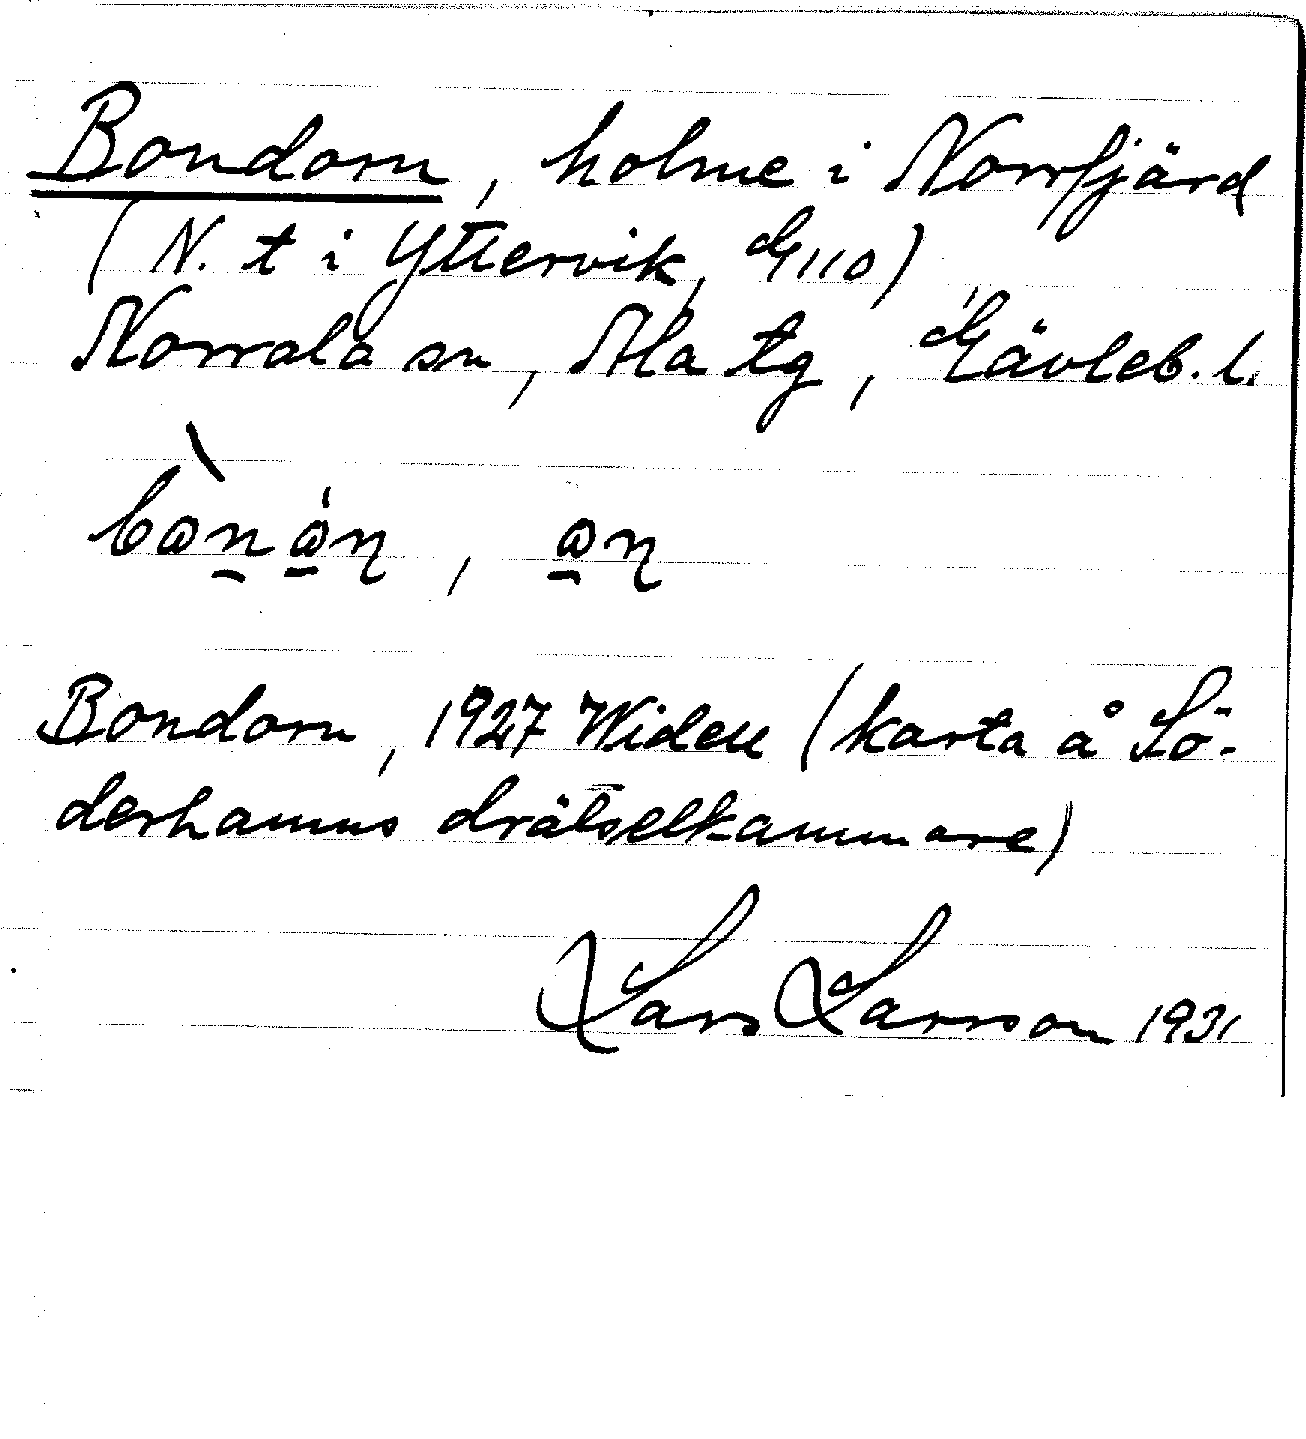 Bondorn, holme i Norrfjärd
(N. t i Yttervik, G 110),
Norrala sn, Ala tg, Gävleb. l.
Bondorn, 1927 Widell (karta å Sö-
derhamns drätselkammare)
Lars Larsson 1931